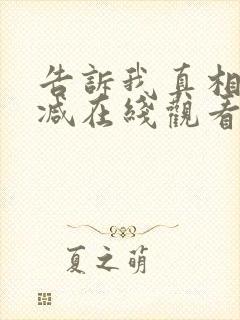 告訴我真相
减在綫觀看
夏之萌